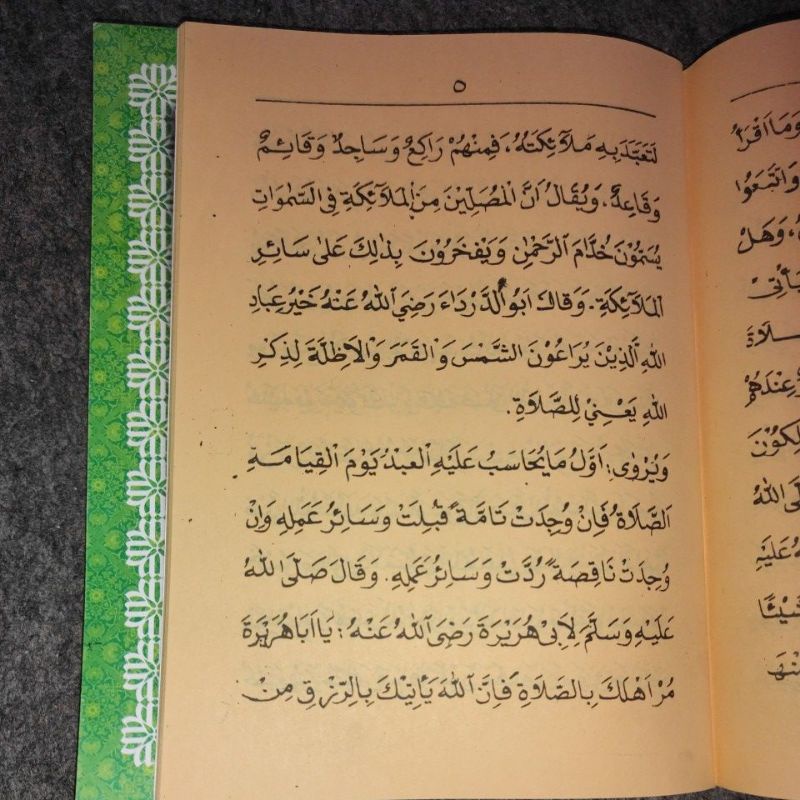 ٥
لَتَعَبَّدَ بِهِ مَلَآئِكَتُهُ، فَمِنْهُمْ رَاكِعٌ وَسَاجِدٌ وَقَائِمٌ
وَقَاعِدٌ، وَيُقَالُ اَنَّ الْمُصَلِّيْنَ مِنَ الْمَلَآئِكَةِ فِى السَّمٰوَاتِ
يُسَمَّوْنَ خُدَّامَ الرَّحْمٰنِ وَيَفْخَرُوْنَ بِذٰلِكَ عَلَى سَائِرِ
الْمَلَآئِكَةِ. وَقَالَ اَبُو الدَّرْدَاءَ رَضِيَ اللهُ عَنْهُ خَيْرُ عِبَادِ
اللهِ الَّذِيْنَ يُرَاعُوْنَ الشَّمْسَ وَالْقَمَرَ وَالْاَظِلَّةَ لِذِكْرِ
اللهِ يَعْنِيْ لِلصَّلَاةِ.
وَيُرْوٰى: اَوَّلُ مَا يُحَاسَبُ عَلَيْهِ الْعَبْدُ يَوْمَ الْقِيَامَةِ
الصَّلَاةُ فَاِنْ وُجِدَتْ تَامَّةً قُبِلَتْ وَسَائِرُ عَمَلِهِ وَاِنْ
وُجِدَتْ نَاقِصَةً رُدَّتْ وَسَائِرُ عَمَلِهِ. وَقَالَ صَلَّى اللهُ
عَلَيْهِ وَسَلَّمَ لِاَبِىْ هُرَيْرَةَ رَضِىَ اللهُ عَنْهُ: يَا اَبَا هُرَيْرَةَ
مُرْ اَهْلَكَ بِالصَّلَاةِ فَاِنَّ اللهَ يَأْتِيْكَ بِالرِّزْقِ مِنْ
وَمَا اقْرَأُ
وَاتَّبَعُوا
وَهَلْ
يَأْتِىْ
عِنْدَهُمْ
اللهُ
عَلَيْهِ
شَيْئًا